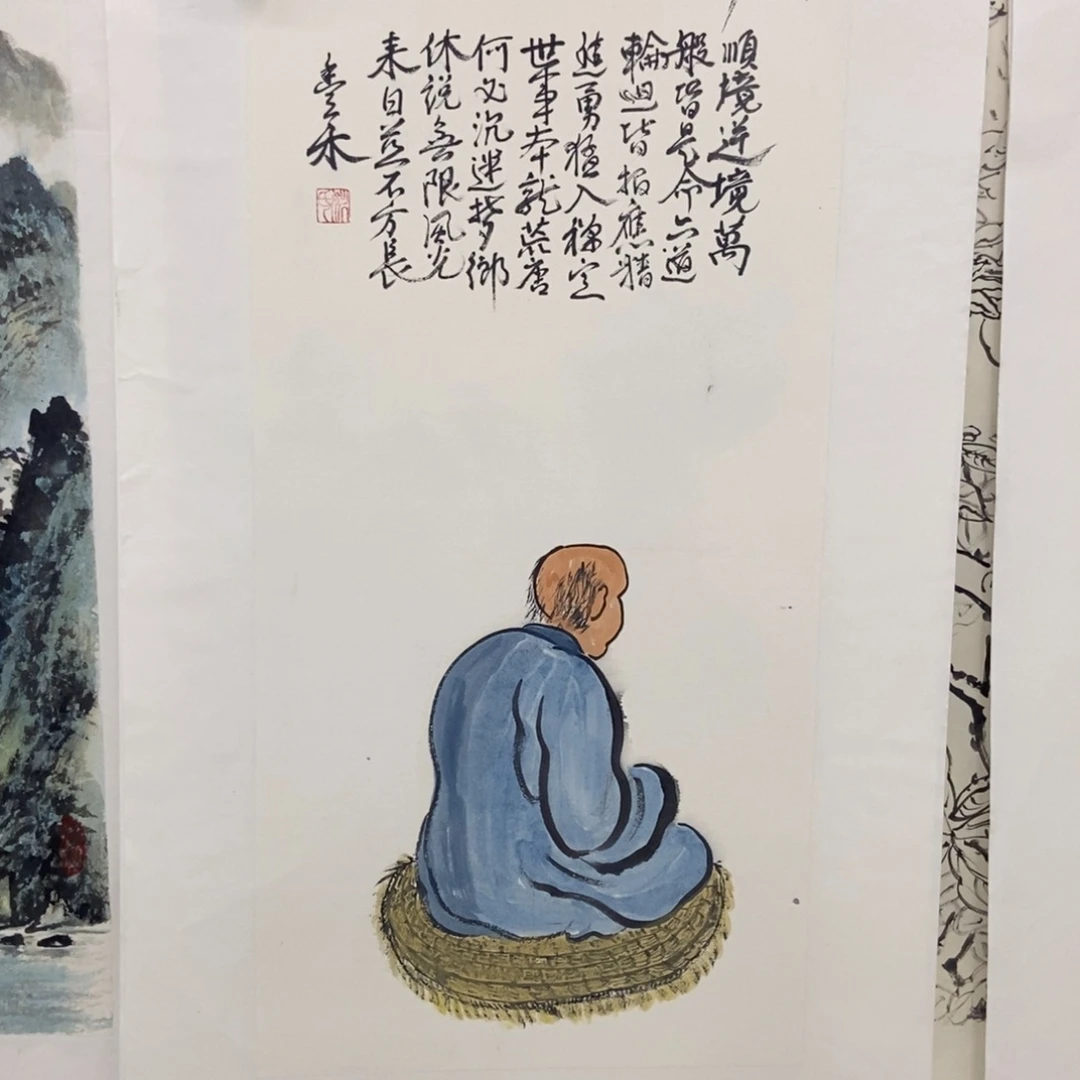 順境逆境萬
般皆是命六道
輪迴皆招應牆
進勇猛入禪定
世事本就荒唐
何必沉迷夢鄉
休說無限風光
来日并不方長